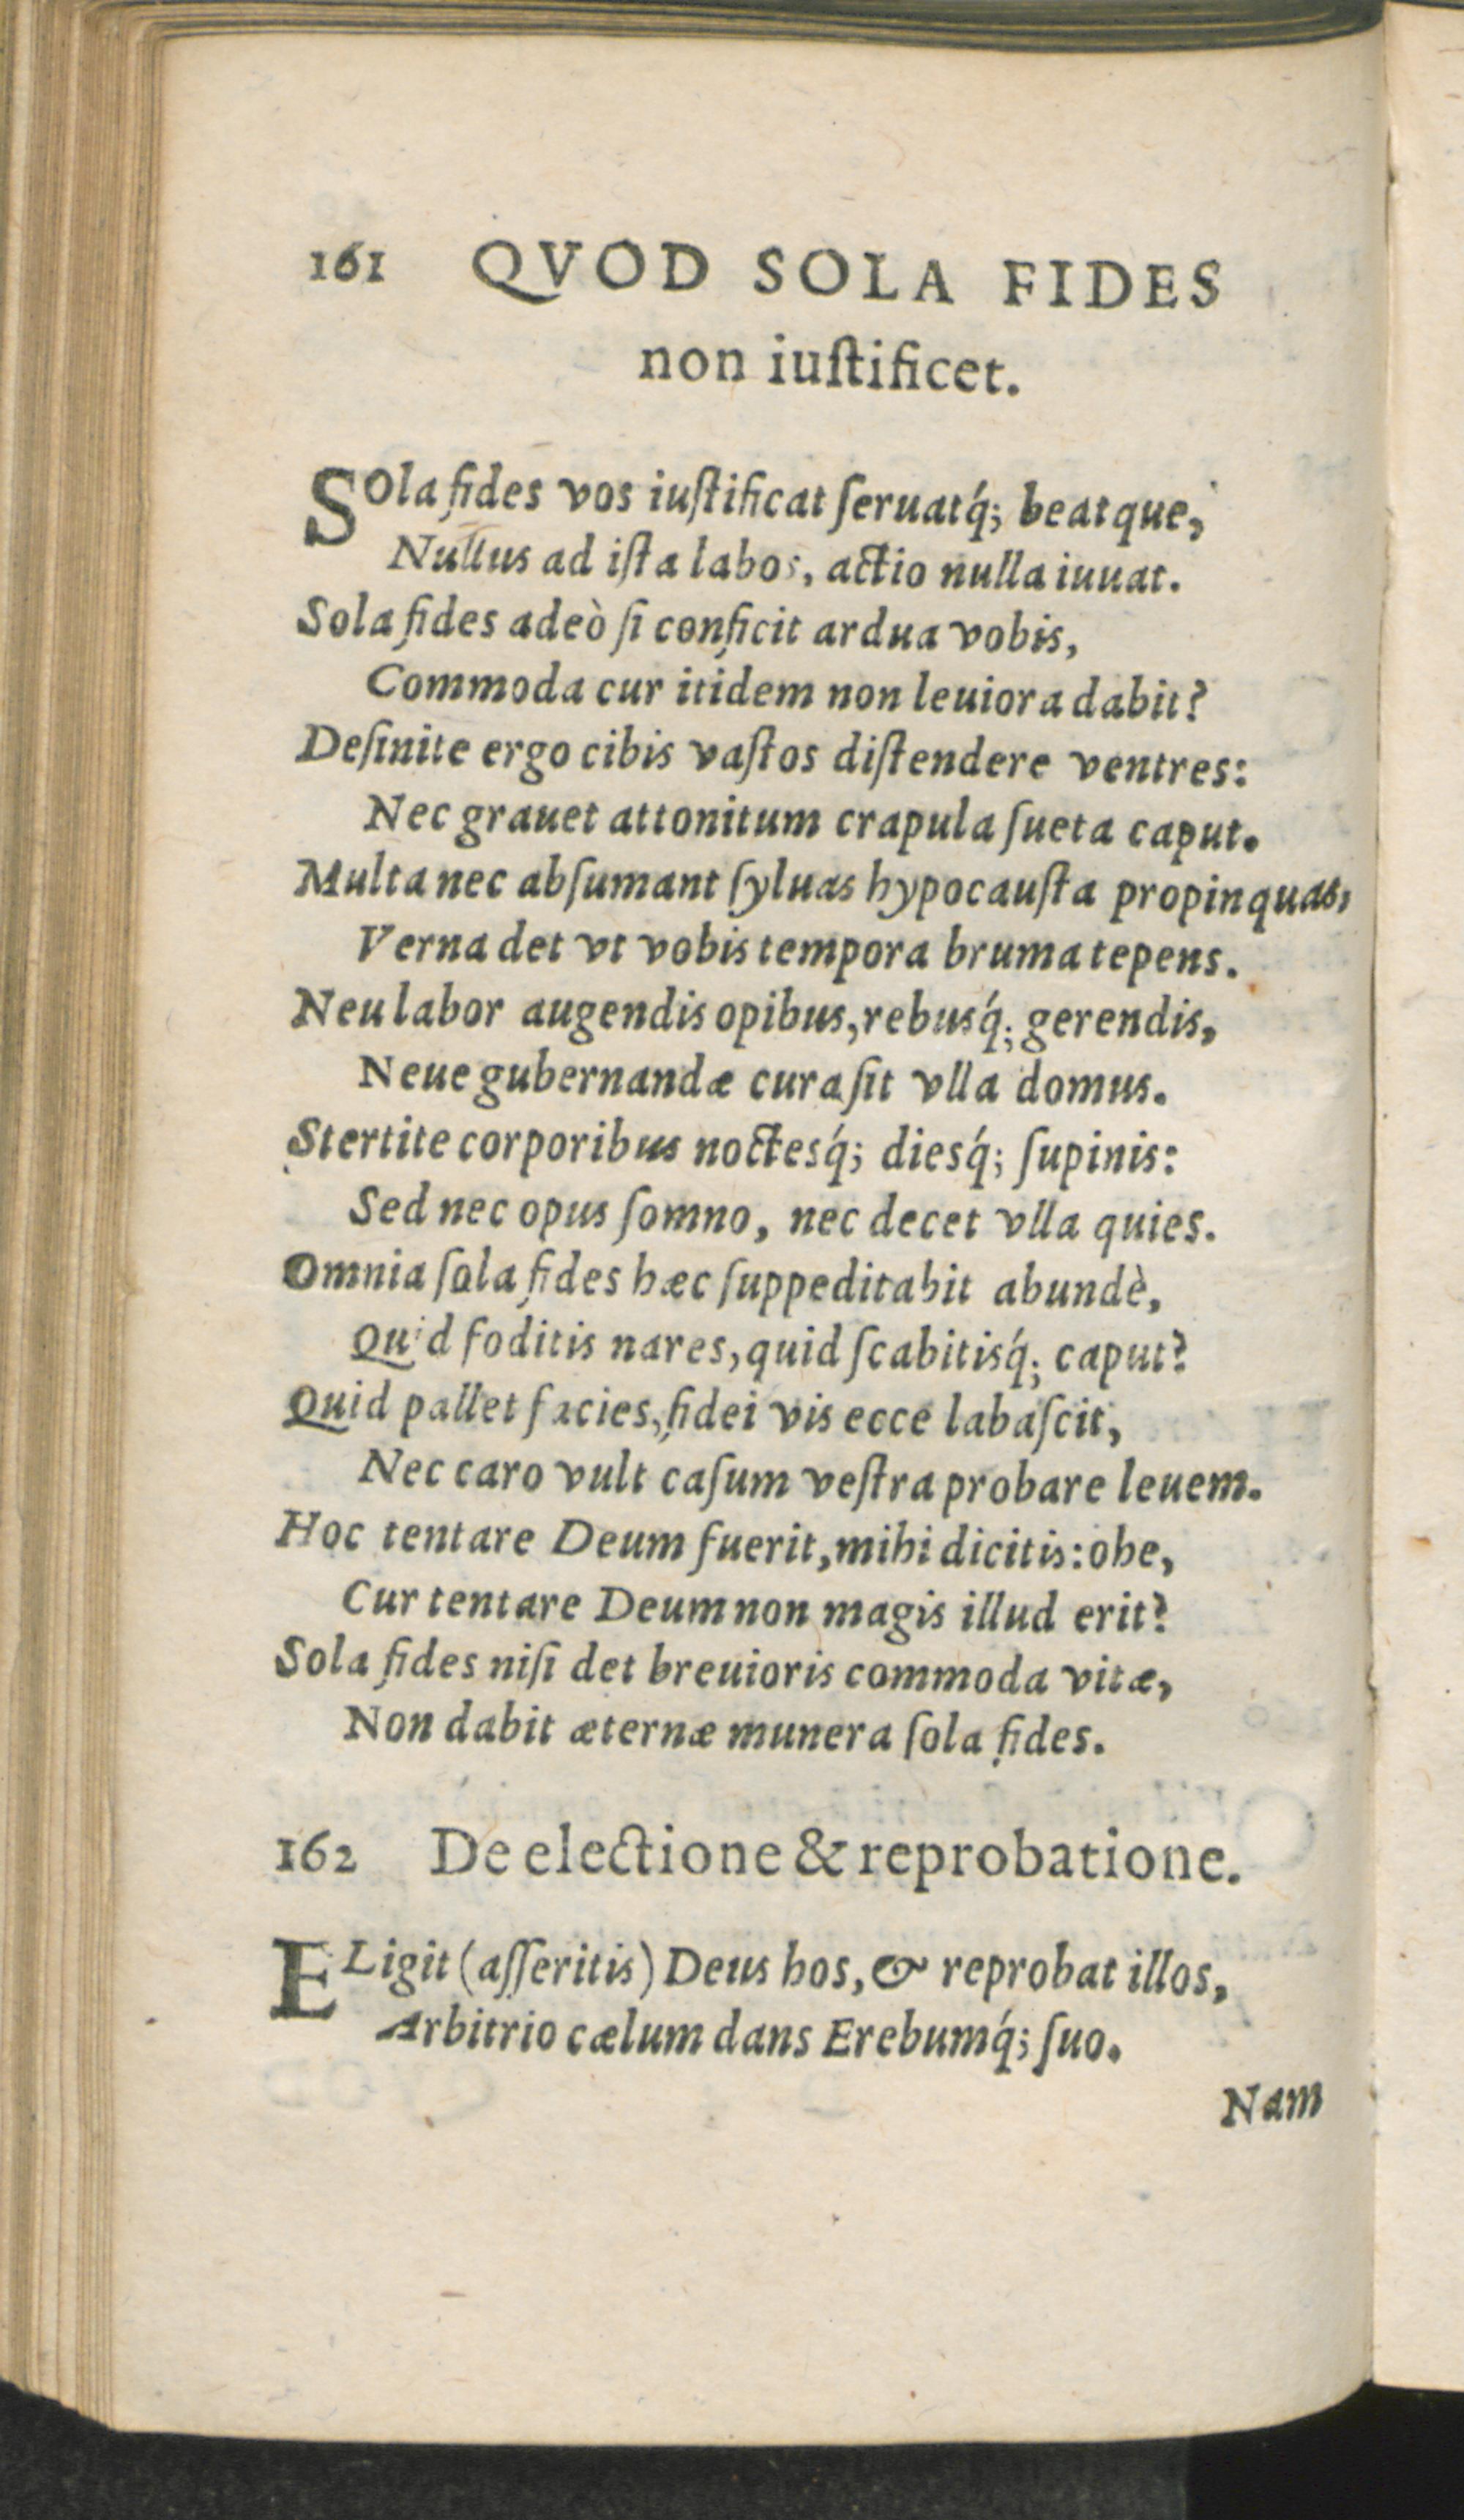 161 QVOD SOLA FIDES
non iuſtificet.
SOla fides vos iuſtificat ſeruatq́; beatque,
Nullus ad iſta labor, actio nulla iuuat.
Sola fides adeò ſi conficit ardua vobis,
Commoda cur itidem non leuiora dabit?
Deſinite ergo cibis vaſtos diſtendere ventres:
Nec grauet attonitum crapula ſueta caput.
Multa nec abſumant ſyluas hypocauſta propinquas,
Verna det vt vobis tempora bruma tepens.
Neu labor augendis opibus, rebusq́; gerendis,
Neue gubernandæ cura ſit vlla domus.
Stertite corporibus noctesq́; diesq́; ſupinis:
Sed nec opus ſomno, nec decet vlla quies.
Omnia ſola fides hæc ſuppeditabit abundè,
Quid foditis nares, quid ſcabitisq́; caput?
Quid pallet facies, fidei vis ecce labaſcit,
Nec caro vult caſum veſtra probare leuem.
Hoc tentare Deum fuerit, mihi dicitis: ohe,
Cur tentare Deum non magis illud erit?
Sola fides niſi det breuioris commoda vitæ,
Non dabit æternæ munera ſola fides.
162 De electione & reprobatione.
ELigit (aſſeritis) Deus hos, & reprobat illos,
Arbitrio cælum dans Erebumq́; ſuo.
Nam